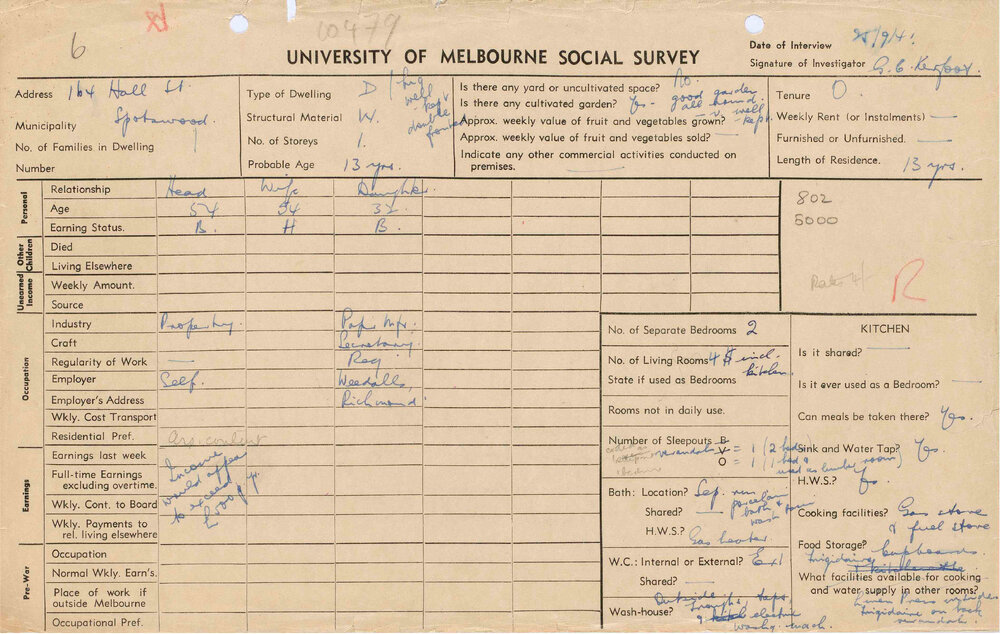 6
10479
UNIVERSITY OF MELBOURNE SOCIAL SURVEY
Date of Interview
Signature of Investigator
Address 164 Hall St.
Municipality Spotswood.
No. of Families in Dwelling
Number
Type of Dwelling D
well kept double fronted
Structural Material W.
No. of Storeys 1.
Probable Age 13 yrs.
Is there any yard or uncultivated space? No.
Is there any cultivated garden? Yes - good garden all round - v. well kept.
Approx. weekly value of fruit and vegetables grown?
Approx. weekly value of fruit and vegetables sold? —
Indicate any other commercial activities conducted on
premises. —
Tenure O.
Weekly Rent (or Instalments) —
Furnished or Unfurnished. —
Length of Residence. 13 yrs.
Personal
Relationship Head Wife Daughter.
Age 54 54 32.
Earning Status. B. H B.
Other Children
Died
Living Elsewhere
Unearned Income
Weekly Amount.
Source
802
5000
Rates
R
Occupation
Industry Property. Paper Mfr.
Craft Secretary.
Regularity of Work — Reg.
Employer Self. Weedalls,
Employer's Address Richmond.
Wkly. Cost Transport
Residential Pref. content
Earnings
Earnings last week
Full-time Earnings
excluding overtime.
Wkly. Cont. to Board
Wkly. Payments to
rel. living elsewhere
Income would appear to exceed
Pre-War
Occupation
Normal Wkly. Earn's.
Place of work if
outside Melbourne
Occupational Pref.
No. of Separate Bedrooms 2
No. of Living Rooms 4 incl. kitchen
State if used as Bedrooms
Rooms not in daily use.
Number of Sleepouts B
verandahs V = 1 (2 beds)
O = 1 (1 bed & used as lumber room)
Bath: Location? Sep. rm
porcelain bath &
Shared? —
H.W.S.?
Gas heater.
W.C.: Internal or External? Ext
Shared? —
Wash-house? Outside, taps,
troughs, & electric
washg. mach.
KITCHEN
Is it shared? —
Is it ever used as a Bedroom? —
Can meals be taken there? Yes.
Sink and Water Tap? Yes.
H.W.S.?
Cooking facilities? Gas stove
& fuel stove
Food Storage? Cupboards
frigidaire
What facilities available for cooking
and water supply in other rooms?
Linen Press
frigidaire on back
verandah.